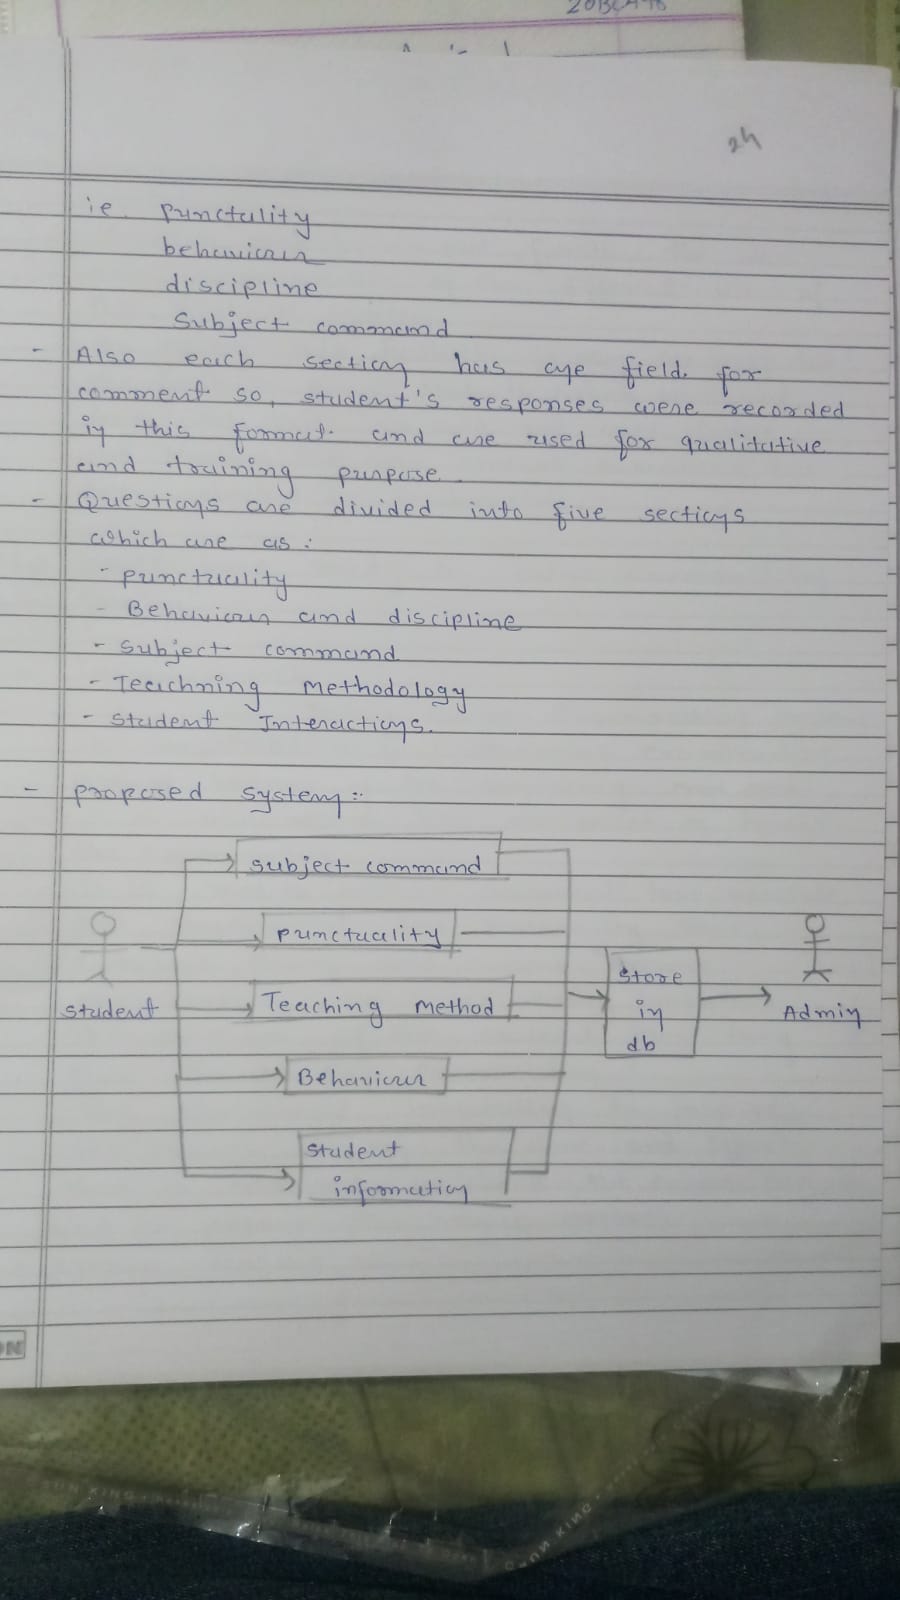 20BCA98
24
ie. punctulity
behaviour
discipline
Subject command
- Also each section has one field for
comment so, student's responses were recorded
in this format and are used for qualitative
and training purpose.
- Questions are divided into five sections
which are as :
- punctuality
- Behaviour and discipline
- subject command
- Teachning methodology
- student Interactions.
- proposed system :-
subject command
punctuality
Teaching method
Behaviour
student
information
student
store
in
db
Admin
ON
SUN KING
SUN KING